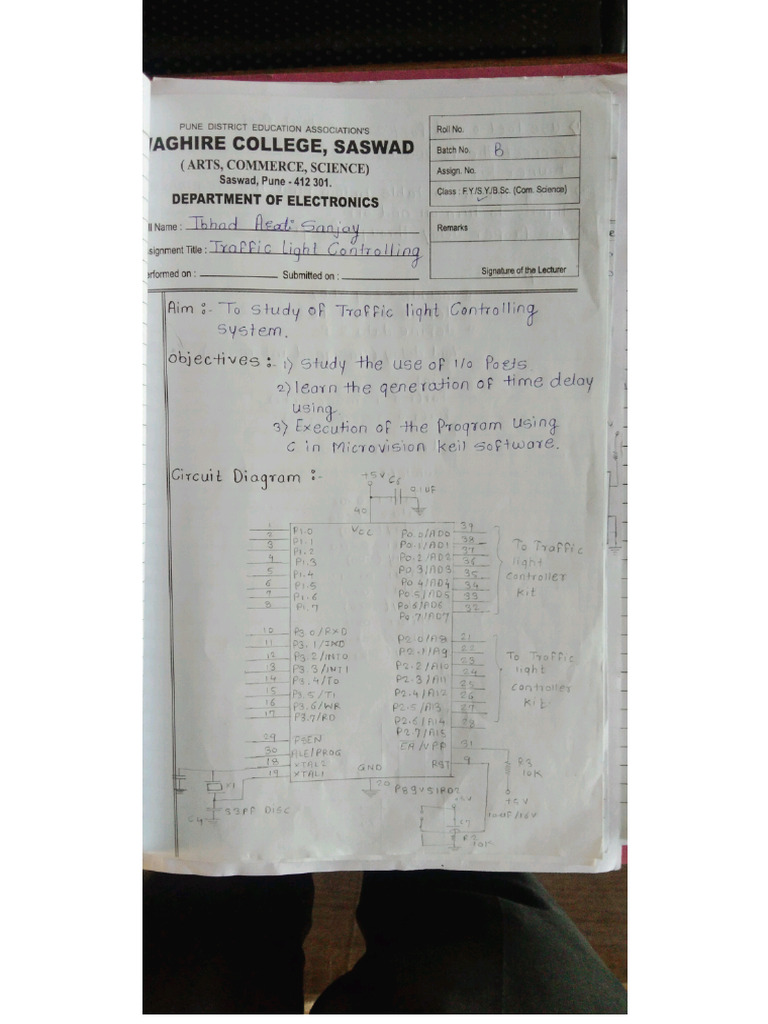 PUNE DISTRICT EDUCATION ASSOCIATION'S
WAGHIRE COLLEGE, SASWAD
( ARTS, COMMERCE, SCIENCE)
Saswad, Pune - 412 301.
DEPARTMENT OF ELECTRONICS
Roll No.
Batch No. B
Assign. No.
Class : F.Y./S.Y./B.Sc. (Com. Science)
ll Name : Ibhad Sanjay
signment Title : Traffic Light Controlling
erformed on : Submitted on :
Remarks
Signature of the Lecturer
Aim :- To study of Traffic light Controlling
system.
Objectives :- 1) Study the use of I/O Ports
2) learn the generation of time delay
using
3) Execution of the Program using
C in Microvision keil software.
Circuit Diagram :-
+5V C8
0.1UF
40
VCC
1 P1.0
2 P1.1
3 P1.2
4 P1.3
5 P1.4
6 P1.5
7 P1.6
8 P1.7
10 P3.0/RXD
11 P3.1/TXD
12 P3.2/INT0
13 P3.3/INT1
14 P3.4/T0
15 P3.5/T1
16 P3.6/WR
17 P3.7/RD
29 PSEN
30 ALE/PROG
18 XTAL2
19 XTAL1
GND
20
P0.0/AD0 39
P0.1/AD1 38
P0.2/AD2 37
P0.3/AD3 36
P0.4/AD4 35
P0.5/AD5 34
P0.6/AD6 33
P0.7/AD7 32
To Traffic
light
controller
kit
P2.0/A8 21
P2.1/A9 22
P2.2/A10 23
P2.3/A11 24
P2.4/A12 25
P2.5/A13 26
P2.6/A14 27
P2.7/A15 28
To Traffic
light
controller
kit
EA/VPP 31
RST 9
R3
10K
+5V
P89V51RD2
+5V
10UF/16V
10K
33PF DISC
C4